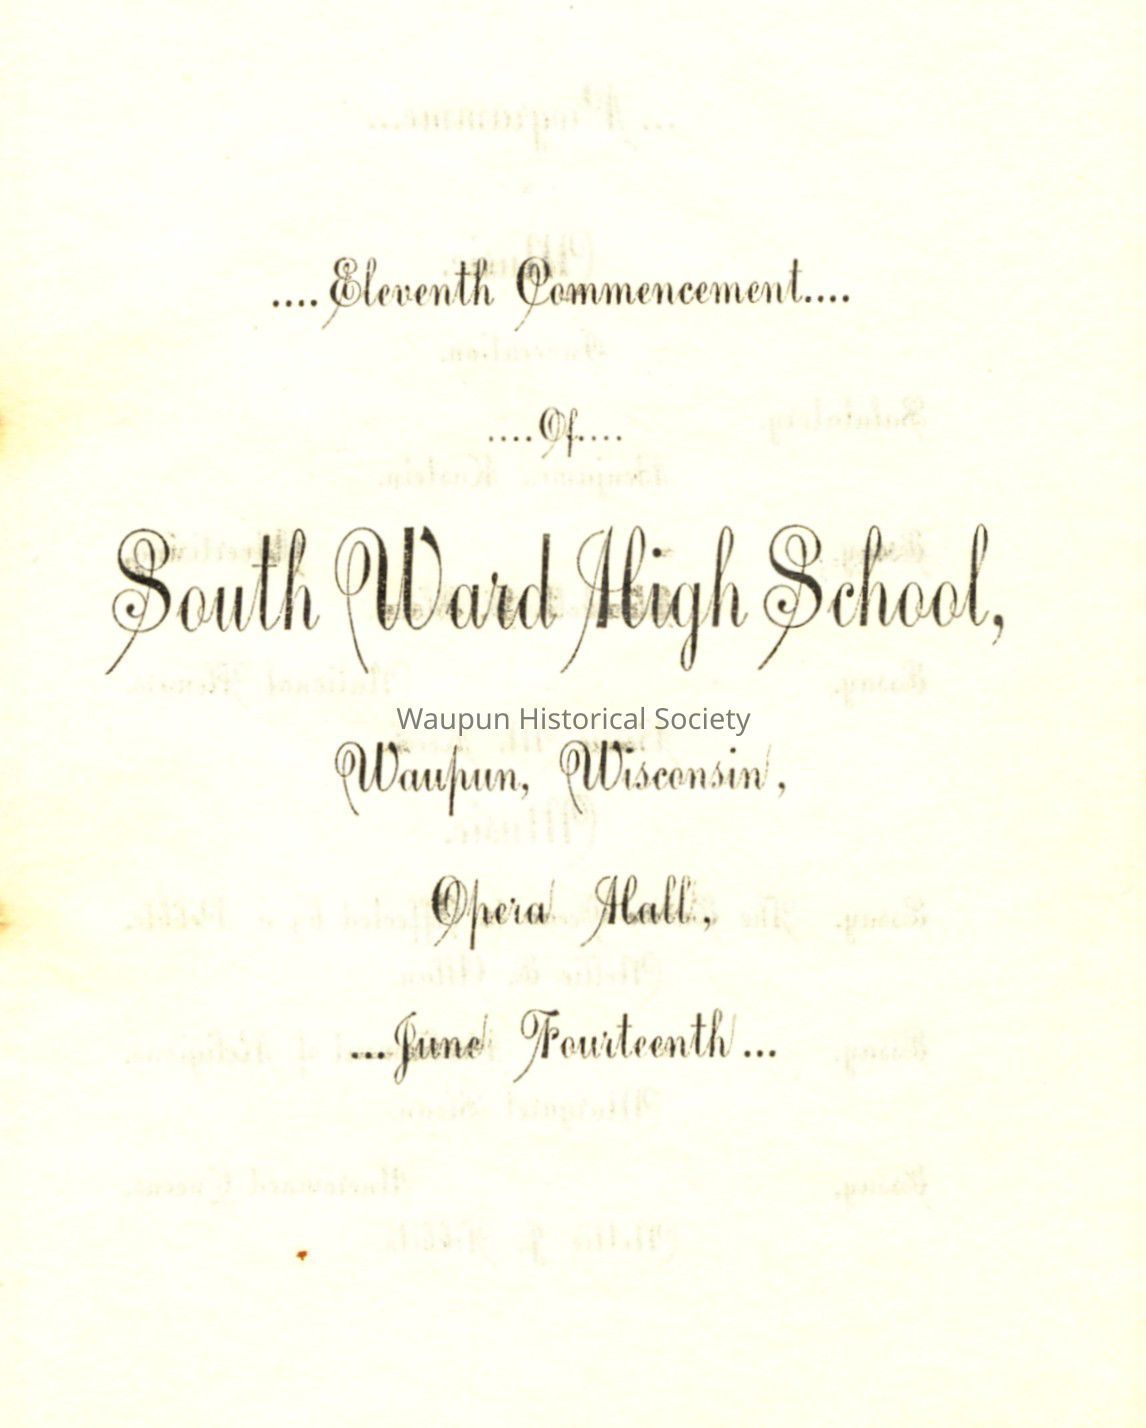 ....Eleventh Commencement....
....Of....
South Ward High School,
Waupun Historical Society
Waupun, Wisconsin,
Opera Hall,
...June Fourteenth...